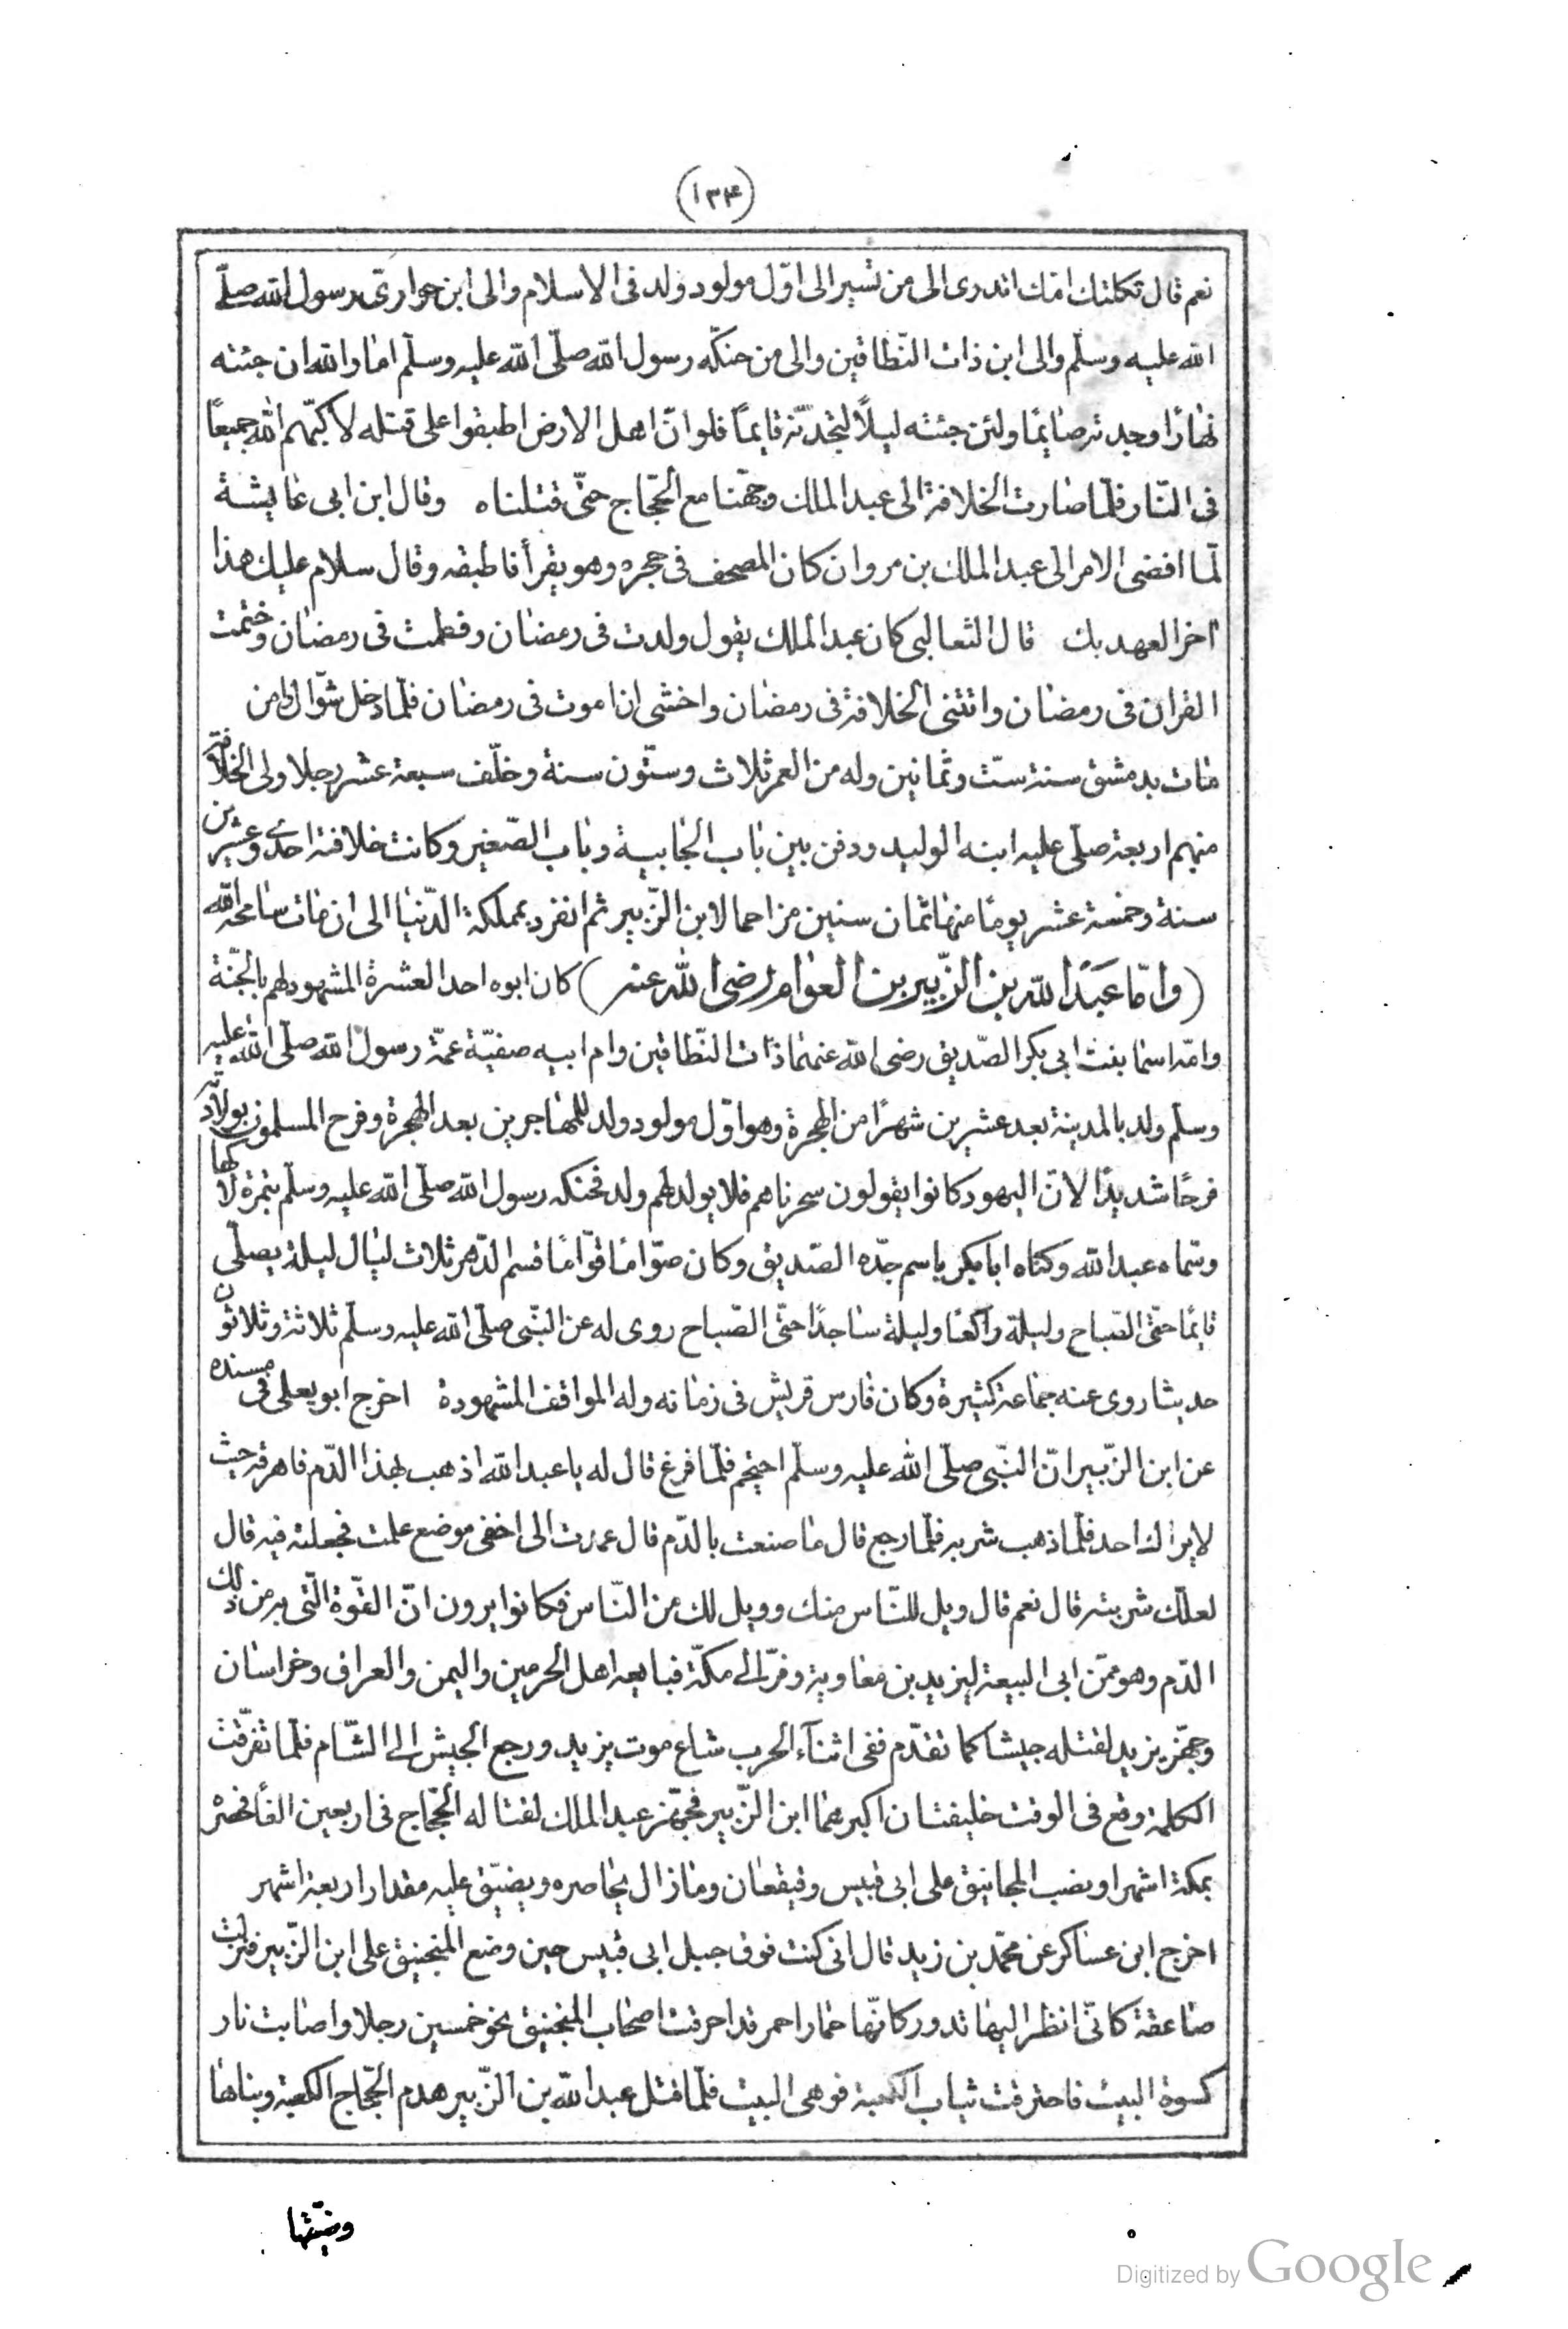 (١٣٤)
نعم قال ثكلتك امّك اتدرى الى من تسير الى اوّل مولود ولد فى الاسلام والى ابن حوارىّ رسول الله صلّى
الله عليه وسلّم والى ابن ذات النّطاقين والى من حنكّه رسول الله صلّى الله عليه وسلّم امّا والله ان جئته
نهارًا وجدته صايمًا ولئن جئته ليلًا لتجدنّه قايمًا فلو انّ اهل الارض اطبقوا على قتله لاكبّهم الله جميعًا
فى النّار فلمّا صارت الخلافة الى عبد الملك وجّهنا مع الحجّاج حتّى قتلناه وقال ابن ابى عايشة
لمّا افضى الامر الى عبد الملك بن مروان كان المصحف فى حجره وهو يقرأ فاطبقه وقال سلام عليك هذا
اخر العهد بك قال الثعالبى كان عبد الملك يقول ولدت فى رمضان وفطمت فى رمضان وختمت
القران فى رمضان واتتنى الخلافة فى رمضان واخشى ان اموت فى رمضان فلمّا دخل شوّال وامن
مات بدمشق سنة ستّ وثمانين وله من العمر ثلاث وستّون سنة وخلّف سبعة عشر رجلا ولى الخلافة
منهم اربعة صلّى عليه ابنه الوليد ودفن بين باب الجابية وباب الصّغير وكانت خلافته احدى وعشرين
سنة وخمسة عشر يومًا منها ثمان سنين مزاحما لابن الزّبير ثم انفرد بمملكة الدّنيا الى ان مات سامحه الله
(وامّا عبد الله بن الزّبير بن العوام رضى الله عنه) كان ابوه احد العشرة المشهود لهم بالجنّة
وامّه اسما بنت ابى بكر الصّديق رضى الله عنهما ذات النّطاقين وام ابيه صفيّة عمّة رسول الله صلّى الله عليه
وسلّم ولد بالمدينة بعد عشرين شهرًا من الهجرة وهو اوّل مولود ولد للمهاجرين بعد الهجرة وفرح المسلمون بولادته
فرحًا شديدًا لانّ اليهود كانوا يقولون سحرناهم فلا يولد لهم ولد فحنكه رسول الله صلّى الله عليه وسلّم بتمرة لاكها
وسّماه عبد الله وكنّاه ابا بكر باسم جدّه الصّديق وكان صوّامًا قوّامًا قسم الدّهر ثلاث ليال ليلة يصلّى
قايمًا حتّى الصّباح وليلة راكعًا وليلة ساجدًا حتّى الصّباح روى له عن النّبى صلّى الله عليه وسلّم ثلاثة وثلاثون
حديثا روى عنه جماعة كثيرة وكان فارس قريش فى زمانه وله المواقف المشهودة اخرج ابو يعلى فى مسنده
عن ابن الزّبير انّ النّبى صلّى الله عليه وسلّم احتجم فلمّا فرغ قال له يا عبد الله اذهب بهذا الدّم فاهرقه حيث
لا يراك احد فلمّا ذهب شربه فلمّا رجع قال ما صنعت بالدّم قال عمدت الى اخفى موضع علمت فجعلته فيه قال
لعلّك شربته قال نعم قال ويل للنّاس منك وويل لك من النّاس فكانوا يرون انّ القوّة الّتى به من ذلك
الدّم وهو ممّن ابى البيعة ليزيد بن معاوية وفرّ الى مكّة فبايعه اهل الحرمين واليمن والعراق وخراسان
وجهّز يزيد لقتله جيشا كما تقدّم ففى اثناء الحرب شاع موت يزيد ورجع الجيش الى الشّام فلمّا تفرّقت
الكلمة وقع فى الوقت خليفتان اكبرهما ابن الزّبير فجهّز عبد الملك لقتاله الحجّاج فى اربعين الفًا فحصره
بمكة اشهرا ونصب المجانيق على ابى قبيس وقيقعان وما زال يحاصره ويضيّق عليه مقدار اربعة اشهر
اخرج ابن عساكر عن محمّد بن زيد قال انى كنت فوق جبل ابى قبيس حين وضع المنجنيق على ابن الزّبير فنزلت
صاعقة كانّى انظر اليها تدور كانّها حمار احمر قد احرقت اصحاب المنجنيق نحو خمسين رجلا واصابت نار
كسوة البيت فاحترقت ثياب الكعبة فوهى البيت فلمّا قتل عبد الله بن الزّبير هدم الحجّاج الكعبة وبناها
Digitized by Google